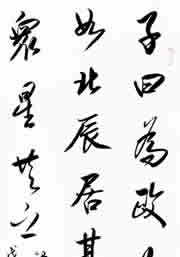 子曰為政
如北辰居其
眾星共之